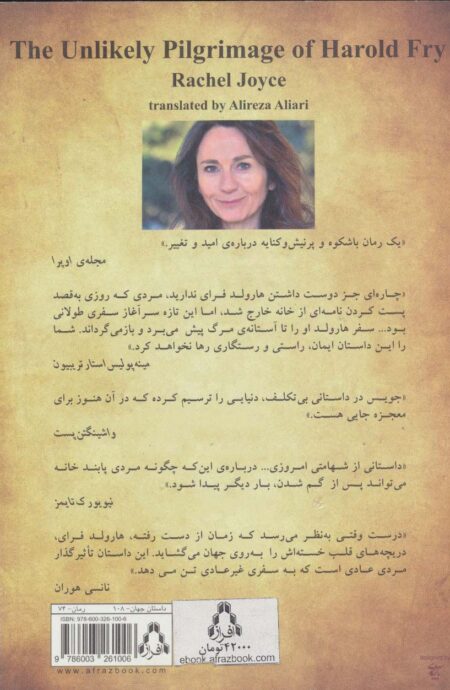 The Unlikely Pilgrimage of Harold Fry
Rachel Joyce
translated by Alireza Aliari
«یک رمان باشکوه و پرنیش‌وکنایه درباره‌ی امید و تغییر.»
مجله‌ی اوپرا
«چاره‌ای جز دوست داشتن هارولد فرای ندارید، مردی که روزی به‌قصد
پست کردن نامه‌ای از خانه خارج شد، اما این تازه سرآغاز سفری طولانی
بود... سفر هارولد او را تا آستانه‌ی مرگ پیش می‌برد و بازمی‌گرداند. شما
را این داستان ایمان، راستی و رستگاری رها نخواهد کرد.»
مینه‌پولیس استار تریبیون
«جویس در داستانی بی‌تکلف، دنیایی را ترسیم کرده که در آن هنوز برای
معجزه جایی هست.»
واشینگتن‌پست
«داستانی از شهامتی امروزی... درباره‌ی این‌که چگونه مردی پابند خانه
می‌تواند پس از گم شدن، بار دیگر پیدا شود.»
نیویورک‌تایمز
«درست وقتی به‌نظر می‌رسد که زمان از دست رفته، هارولد فرای،
دریچه‌های قلب خسته‌اش را به‌روی جهان می‌گشاید. این داستان تأثیرگذار
مردی عادی است که به سفری غیرعادی تن می دهد.»
نانسی هوران
داستان جهان-۱۰۸ رمان-۷۴
ISBN: 978-600-326-100-6
9 786003 261006
www.afrazbook.com
افراز
افراز
۴۲۰۰۰تومان
ebook.afrazbook.com